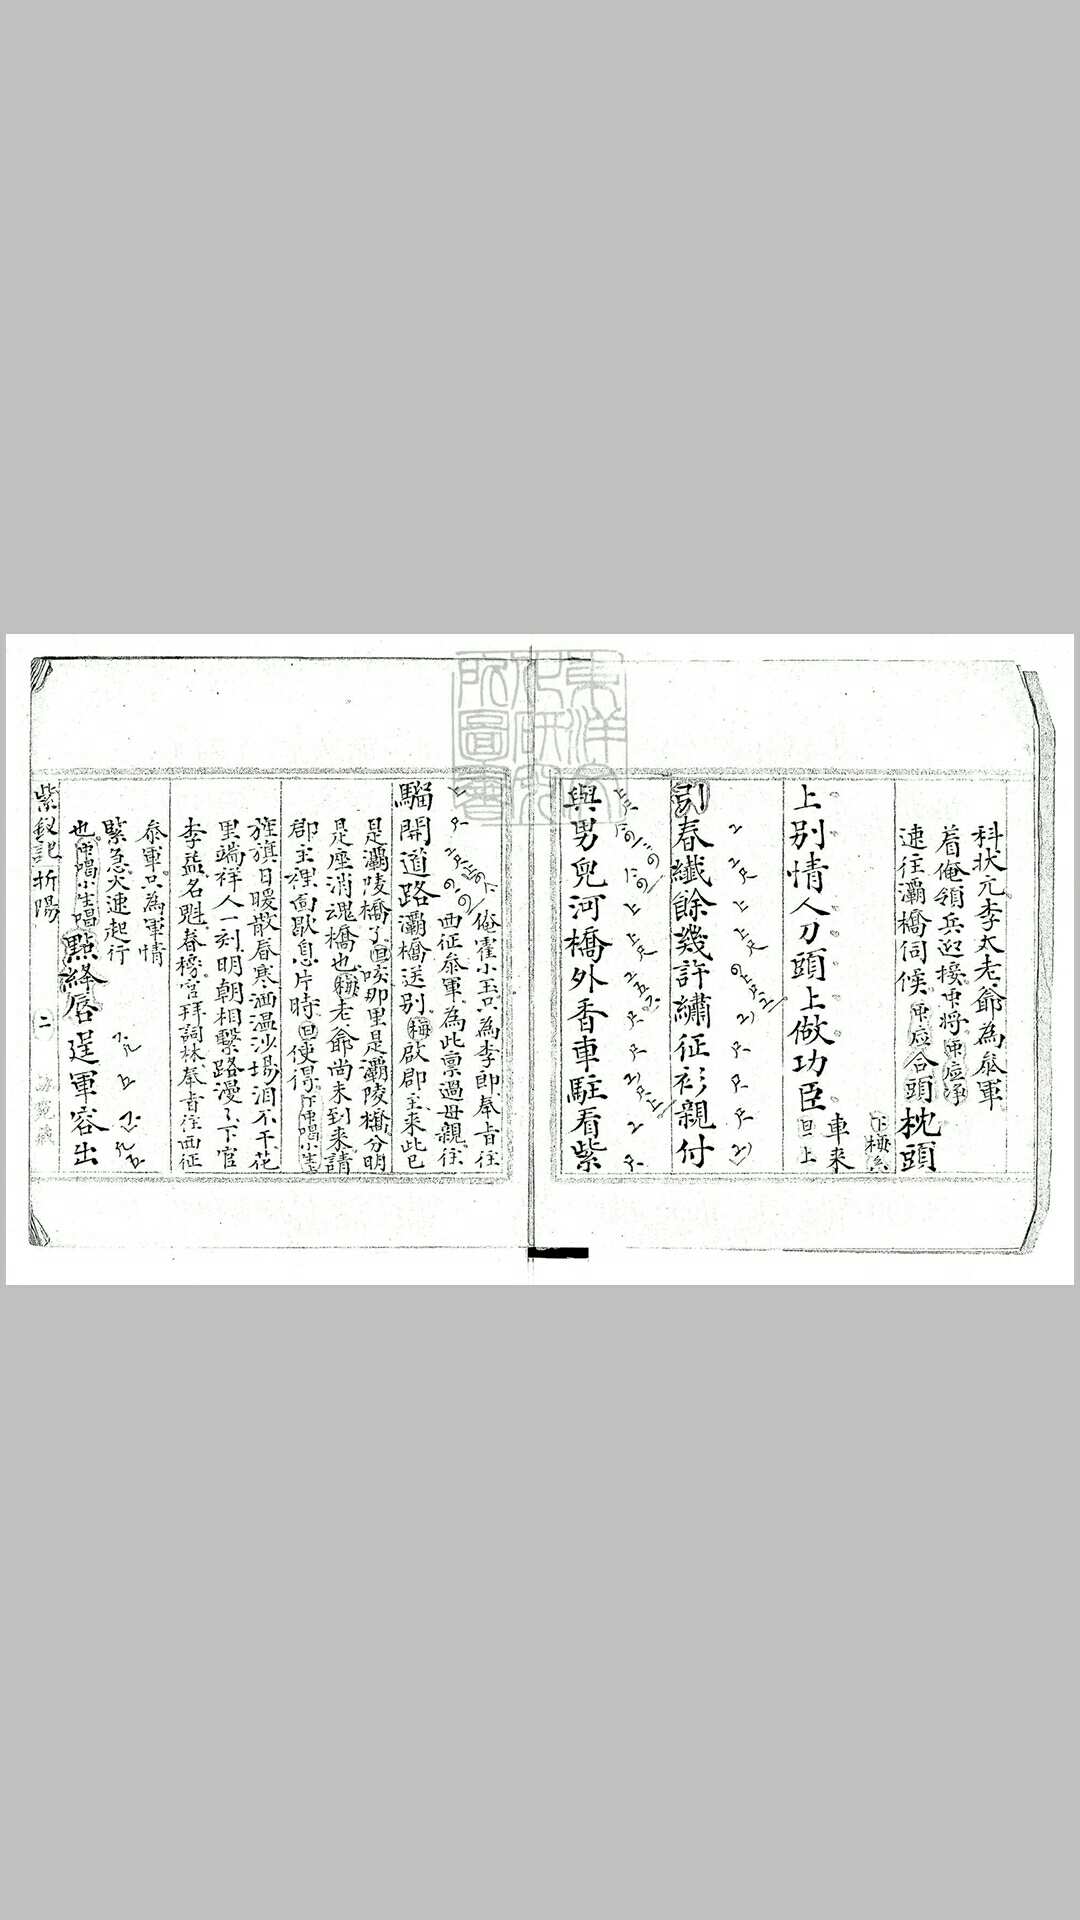 科状元李太老爺為叅軍
着俺領兵迎接中将(衆应净)
速往灞橋伺候(衆应)合頭枕頭
上别情人刀頭上做功臣
車来
旦上
引春纖餘幾許繡征衫親付
與男兒河橋外香車駐看紫
騮開道路
俺霍小玉只為李郎奉旨往
西征叅軍為此禀過母親往
灞橋送别(梅)啟郡主来此已
是灞陵橋了(旦)唉那里是灞陵橋分明
是座消魂橋也(梅)老爺尚未到来請
郡主裡面歇息片時(旦)使得
旌旗日暖散春寒酒湿沙場泪不干花
里端祥人一刻明朝相繫路漫〻下官
李益名魁春榜官拜詞林奉旨往西征
叅軍只為軍情
緊急火速起行
也(衆唱小生唱)點絳唇逞軍容出
紫釵記折陽
二
東洋文化研究所圖書